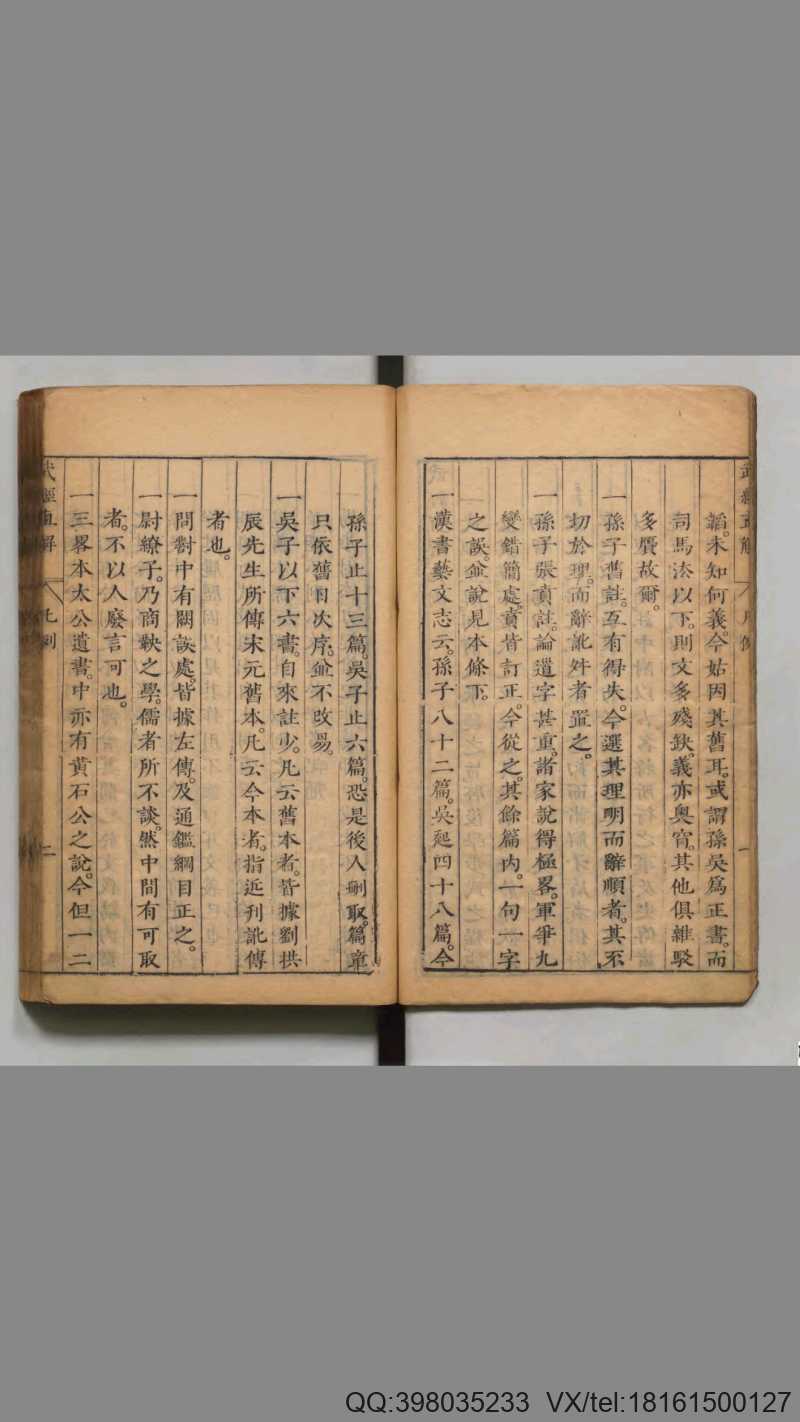 武經直解 凡例 一
韜。未知何義。今姑因其舊耳。或謂孫吳爲正書。而
司馬法以下。則文多殘缺。義亦奧窅。其他俱雜駁
多贋故爾。
一孫子舊註。互有得失。今選其理明而辭順者。其不
切於理。而辭訛舛者置之。
一孫子張賁註。論遣字甚重。諸家說得極畧。軍爭九
變錯簡處。賁皆訂正。今從之。其餘篇內。一句一字
之誤。並說見本條下。
一漢書藝文志云。孫子八十二篇。吳起四十八篇。今
孫子止十三篇。吳子止六篇。恐是後人刪取。篇章
只依舊目次序。並不改易。
一吳子以下六書。自來註少。凡云舊本者。皆據劉拱
辰先生所傳末元舊本。凡云今本者。指近刊訛傳
者也。
一問對中有闕誤處。皆據左傳。及通鑑綱目正之。
一尉繚子。乃商鞅之學。儒者所不談。然中間有可取
者。不以人廢言可也。
一三畧本太公遺書。中亦有黃石公之說。今但一二
武經直解 凡例 二
QQ:398035233 VX/tel:18161500127